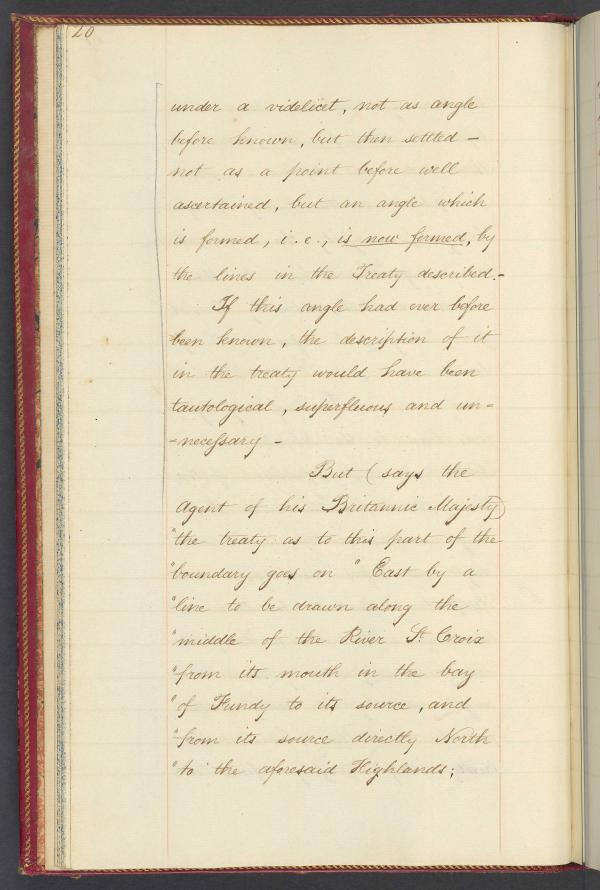 20
under a videlicet, not as angle
before known, but then settled –
not as a point before well
ascertained, but an angle which
is formed, i.e., is now formed, by
the lines in the Treaty described.–
If this angle had ever before
been known, the description of it
in the treaty would have been
tautological, superfluous and un-
-necessary –
But (says the
Agent of his Britannic Majesty)
"the treaty as to this part of the
"boundary goes on " East by a
"line to be drawn along the
"middle of the River St. Croix
"from its mouth in the bay
"of Fundy to its source, and
"from its source directly North
"to the aforesaid Highlands;